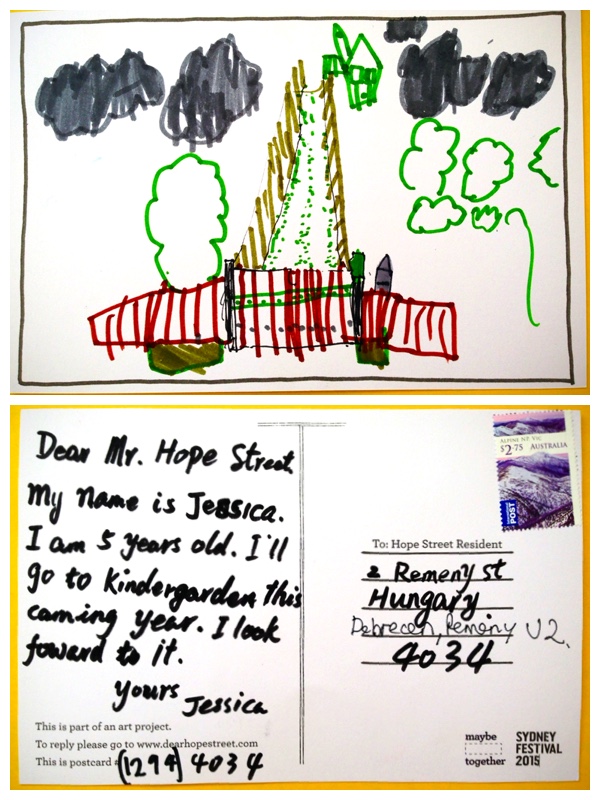 Dear Mr. Hope Street
My name is Jessica.
I am 5 years old. I'll
go to kindergarden this
caming year. I look
foward to it.
yours Jessica
This is part of an art project.
To reply please go to www.dearhopestreet.com
This is postcard # (1294) 4034
ALPINE NP, VIC
$2.75 AUSTRALIA
POST
To: Hope Street Resident
2 Remeny st
Hungary
Debrecen, Remeny U2.
4034
maybe
together
SYDNEY
FESTIVAL
2015